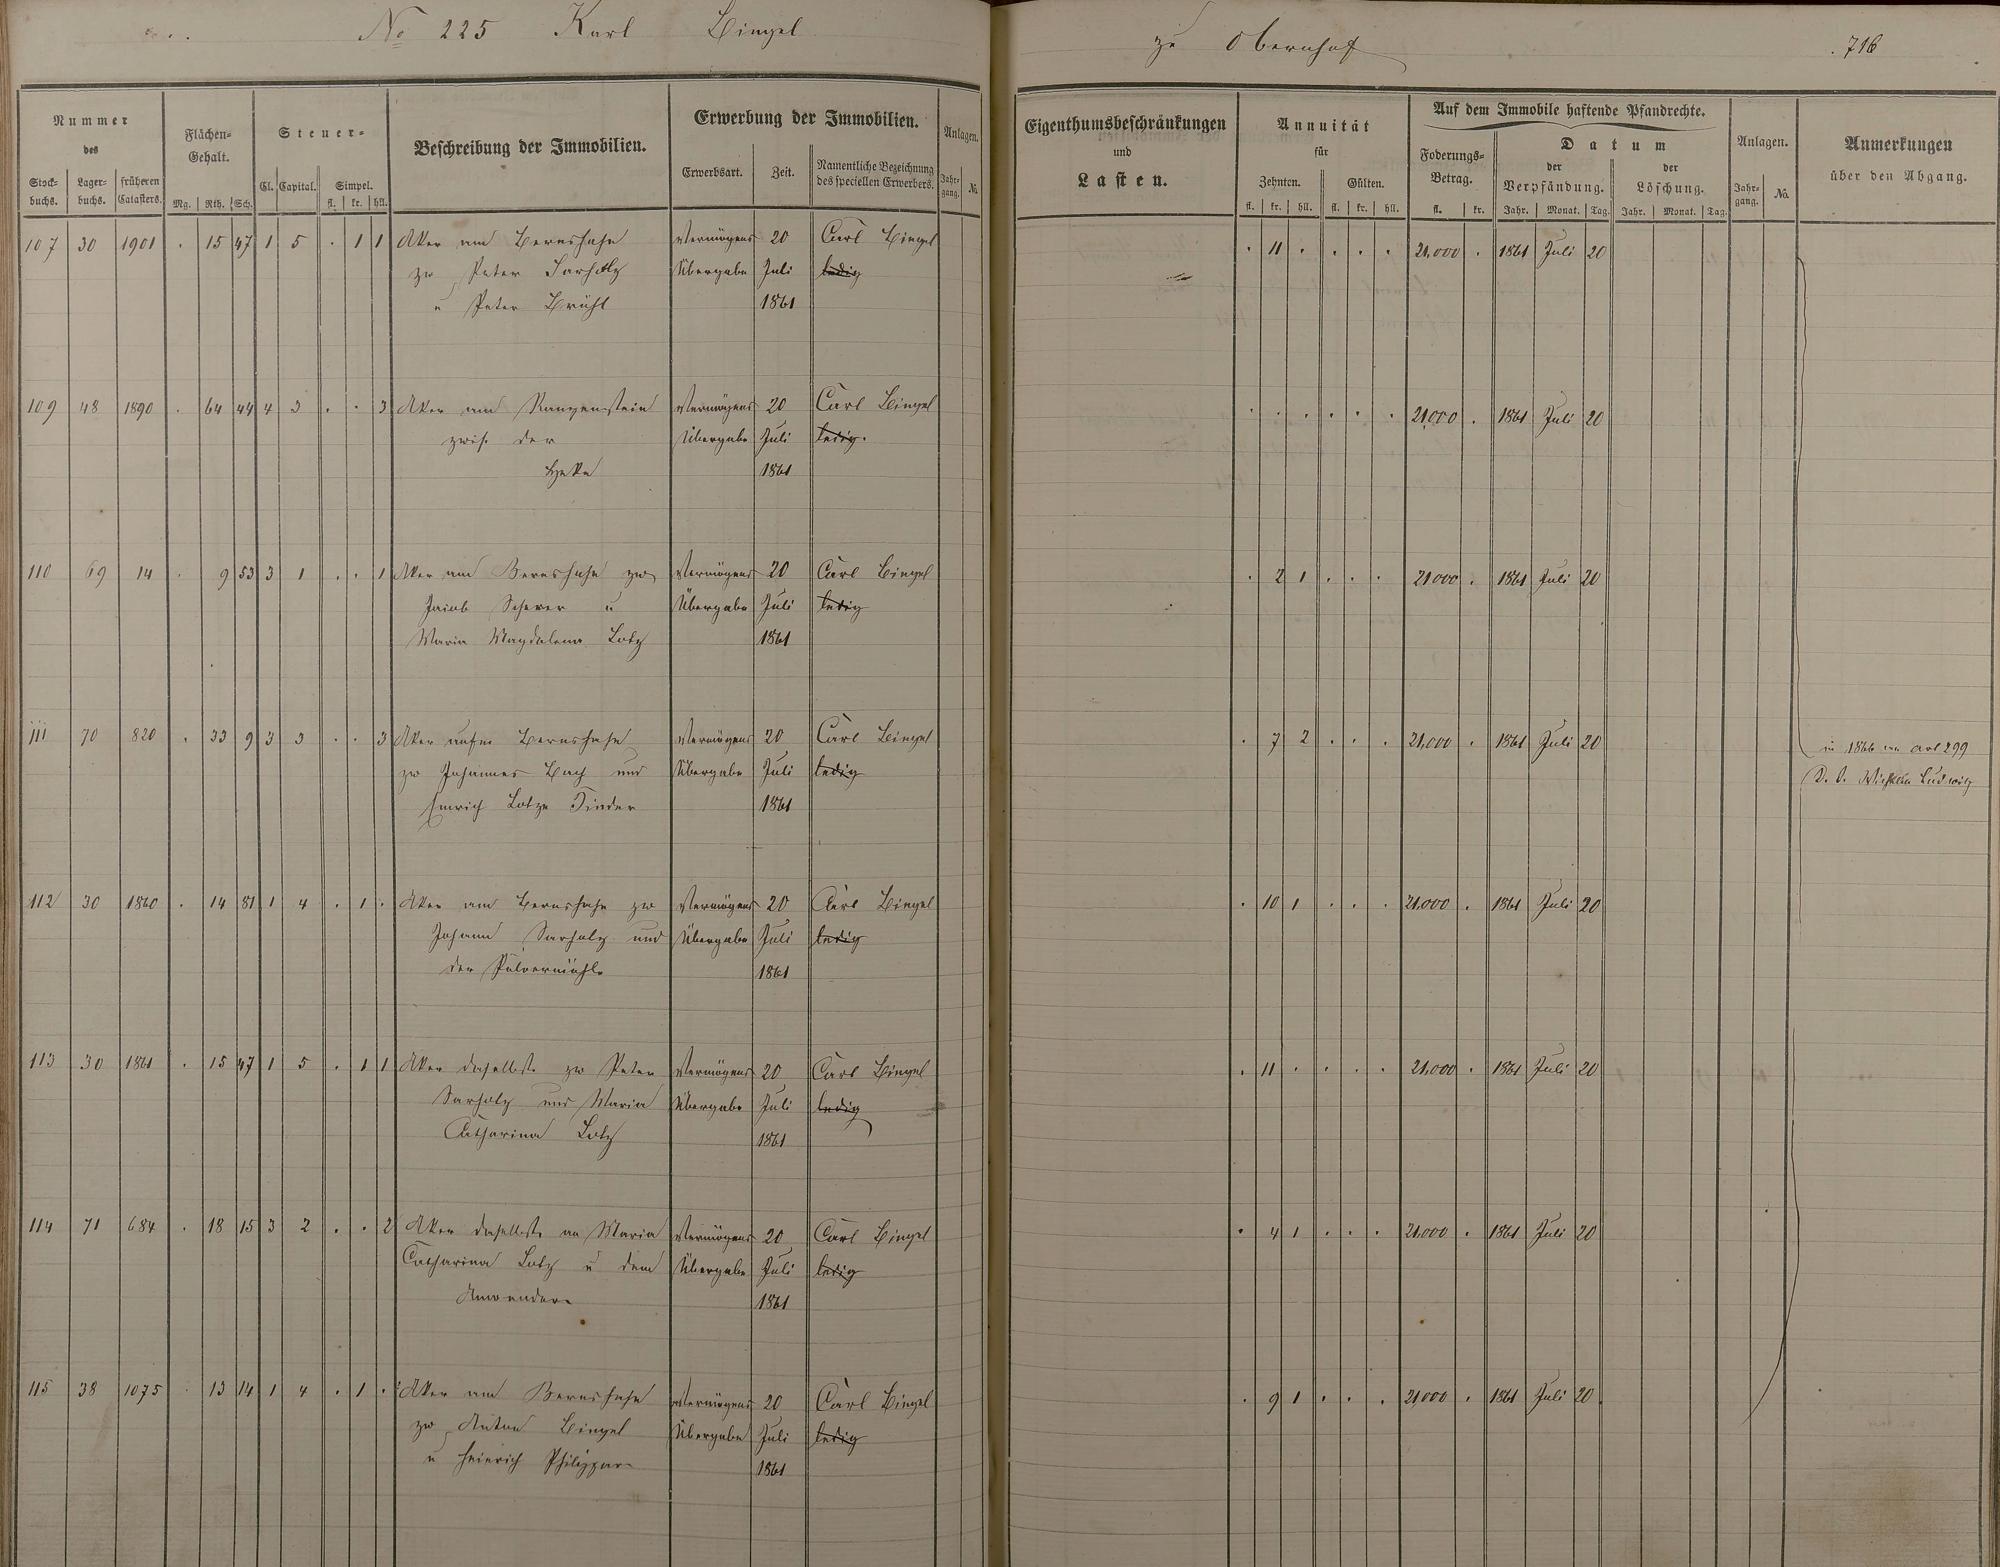 No 225 Karl Bingel
zu Obernhof
716
Nummer
des
Stock-
buchs.
Lager-
buchs.
früheren
Catasters.
Flächen-
Gehalt.
Mg. Rth. Sch.
Steuer-
Cl. Capital. Simpel.
fl. kr. hll.
Beschreibung der Immobilien.
Erwerbung der Immobilien.
Erwerbsart. Zeit. Namentliche Bezeichnung
des speciellen Erwerbers.
Anlagen.
Jahr-
gang. No.
Eigenthumsbeschränkungen
und
Lasten.
Annuität
für
Zehnten. Gülten.
fl. kr. hll. fl. kr. hll.
Auf dem Immobile haftende Pfandrechte.
Foderungs-
Betrag.
fl. kr.
Datum
der
Verpfändung.
Jahr. Monat. Tag.
der
Löschung.
Jahr. Monat. Tag.
Anlagen.
Jahr-
gang. No.
Anmerkungen
über den Abgang.
107 30 1901 . 15 47 1 5 . 1 1 Aker am Bernshahn Vermögens 20 Carl Bingel . 11 . . . . 21,000 . 1861 Juli 20
zw Peter Sarholz Übergabe Juli ledig
u Peter Brühl 1861
109 48 1890 . 64 44 4 3 . . 3 Aker am Rangenstein Vermögens 20 Carl Bingel . . . . . . 21,000 . 1861 Juli 20
zwis. der Übergabe Juli ledig.
Heke 1861
110 69 14 . 9 53 3 1 . . 1 Aker am Bernshahn zw Vermögens 20 Carl Bingel . 2 1 . . . 21000 . 1861 Juli 20
Jacob Scherer u Übergabe Juli ledig
Maria Magdalena Lotz 1861
111 70 820 . 33 9 3 3 . . 3 Aker aufm Bernshahn Vermögens 20 Carl Bingel . 7 2 . . . 21,000 . 1861 Juli 20
zw Johannes Bach und Übergabe Juli ledig
Emrich Lotze Kinder 1861
in 1866 art 299
Ludwig
112 30 1860 . 14 81 1 4 . 1 . Aker am Bernshahn zw Vermögens 20 Carl Bingel . 10 1 . . . 21,000 . 1861 Juli 20
Johann Sarholz und Übergabe Juli ledig
der Pulvermühle 1861
113 30 1861 . 15 47 1 5 . 1 1 Aker daselbst zw Peter Vermögens 20 Carl Bingel . 11 . . . . 21,000 . 1861 Juli 20
Sarholz und Maria Übergabe Juli ledig
Catharina Lotz 1861
114 71 684 . 18 15 3 2 . . 2 Aker daselbst an Maria Vermögens 20 Carl Bingel . 4 1 . . . 21,000 . 1861 Juli 20
Catharina Lotz u dem Übergabe Juli ledig
Anwender 1861
115 38 1075 . 13 14 1 4 . 1 . Aker am Bernshahn Vermögens 20 Carl Bingel . 9 1 . . . 21000 . 1861 Juli 20
zw Anton Bingel Übergabe Juli ledig
u Heinrich Philippar 1861